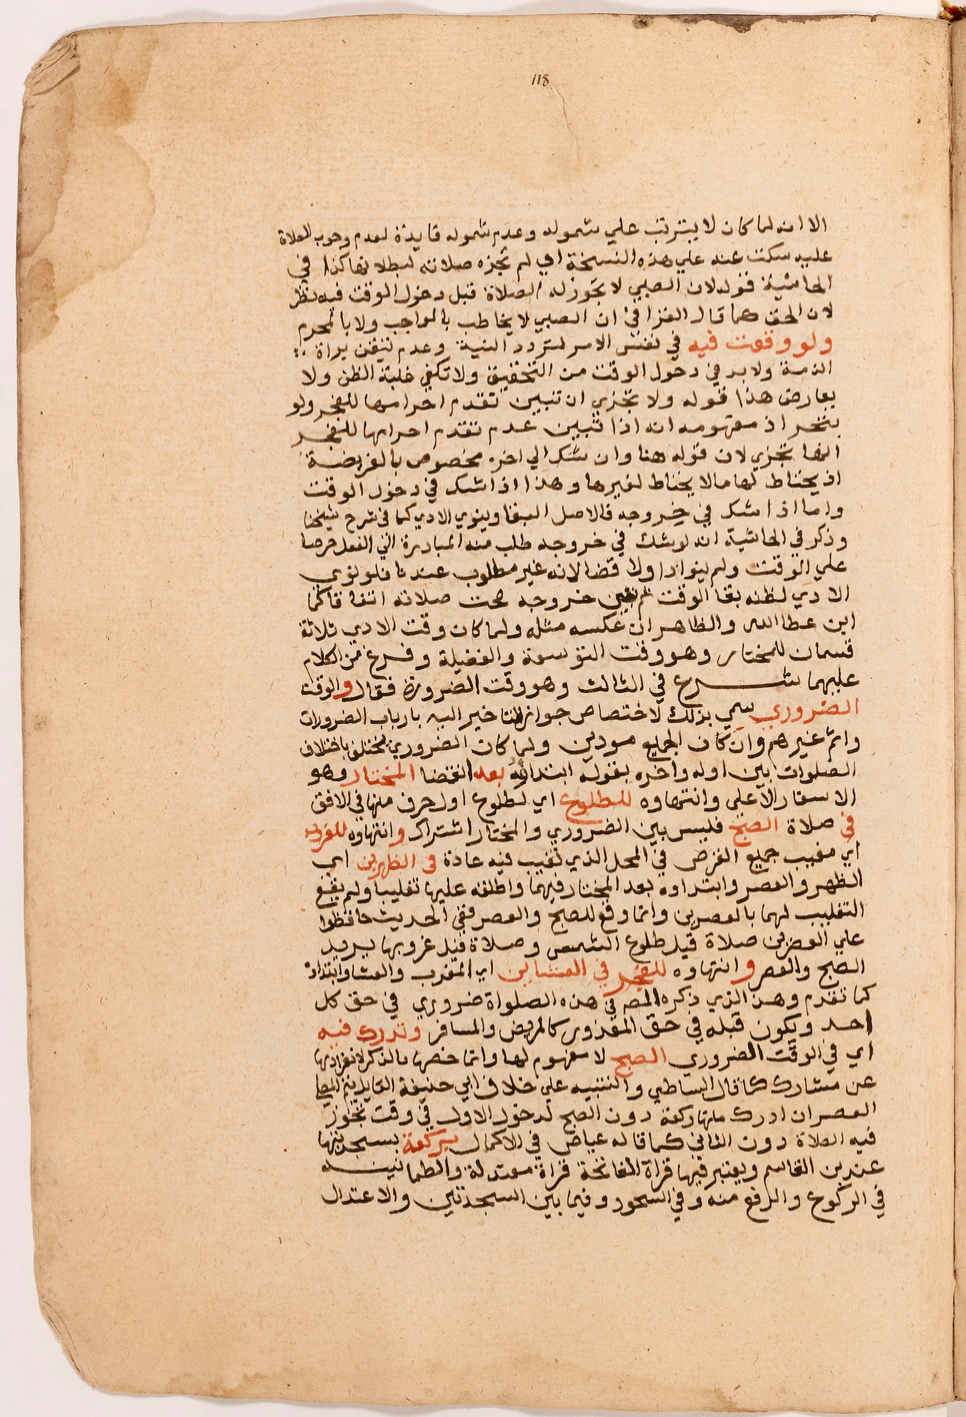 118
الا انه لما كان لا يترتب علي شموله وعدم شموله فايدة لعدم وجوب الصلاة
عليه سكت عنه علي هذه النسخة اي لم تجزه صلاته لبطلانها كذا في
الحاشية قوله لان الصبي لا يجوز له الصلاة قبل دخول الوقت فيه نظر
لان الحق كما قال القرافي ان الصبي لا يخاطب بالواجب ولا بالمحرم
ولو وقعت فيه في نفس الامر لتردد النية وعدم تيقن براة
الذمة ولا بد في دخول الوقت من التحقيق ولا تكفي غلبة الظن ولا
يعارض هذا قوله ولا تجزي ان تبين تقدم احرامها للفجر ولو
بتحر اذ مفهومه انه اذا تبين عدم تقدم احرامها للفجر
انها تجزي لان قوله هنا وان شك الي اخره مخصوص بالفريضة
اذ يحتاط لها مالا يحتاط لغيرها وهذا اذا شك في دخول الوقت
واما اذا شك في خروجه فالاصل البقا وينوي الادي كما في شرح شيخنا
وذكر في الحاشية انه لو شك في خروجه طلب منه المبادرة الي الفعل حرصا
علي الوقت ولم ينو ادا ولا قضا لانه غير مطلوب عندنا فلو نوي
الادي لظنه بقا الوقت ثم تبين خروجه صحت صلاته اتفاقا كما
ابن عطا الله والظاهر ان عكسه مثله ولما كان وقت الادي ثلاثة
قسمان للمختار وهو وقت التوسعة والفضيلة وفرغ من الكلام
عليهما شرع في الثالث وهو وقت الضرورة فقال والوقت
الضروري سمي بذلك لاختصاص جواز التاخير اليه بارباب الضرورات
واثم غيرهم وان كان الجميع مودين ولما كان الضروري يختلف باختلاف
الصلوات بين اوله واخره بقوله ابتداوه بعد انقضا المختار وهو
الاسفار الاعلي وانتهاوه للطلوع اي لطلوع اول حرف منها في الافق
في صلاة الصبح فليس بين الضروري والمختار اشتراك وانتهاوه للغروب
اي مغيب جميع القرص في المحل الذي تغيب فيه عادة في الظهرين اي
الظهر والعصر وابتداوه بعد المختار فيهما واطلقه عليها تغليبا ولم يقع
التغليب لهما بالعصرين وانما وقع للصبح والعصر ففي الحديث حافظوا
علي العصرين صلاة قبل طلوع الشمس وصلاة قبل غروبها يريد
الصبح والعصر وانتهاوه للفجر في العشاين اي المغرب والعشا وابتداوه
كما تقدم وهذا الذي ذكره المص في هذه الصلواة ضروري في حق كل
احد ويكون قبله في حق المعذورين كالمريض والمسافر وتدرك فيه
اي في الوقت الضروري الصبح لا مفهوم لها وانما خصها بالذكر لانفرادها
عن مشارك كما قال البساطي والتنبيه علي خلاف ابي حنيفة القايل
العصر ان ادرك منها ركعة دون الصبح لدخول الاول في وقت تجوز
فيه الصلاة دون الثاني كما قاله عياض في الاكمال بركعة بسجدتيها
عند بن القاسم ويعتبر فيها قراة الفاتحة قراة معتدلة والطمانينه
في الركوع والرفع منه وفي السجود وفيما بين السجدتين والاعتدال